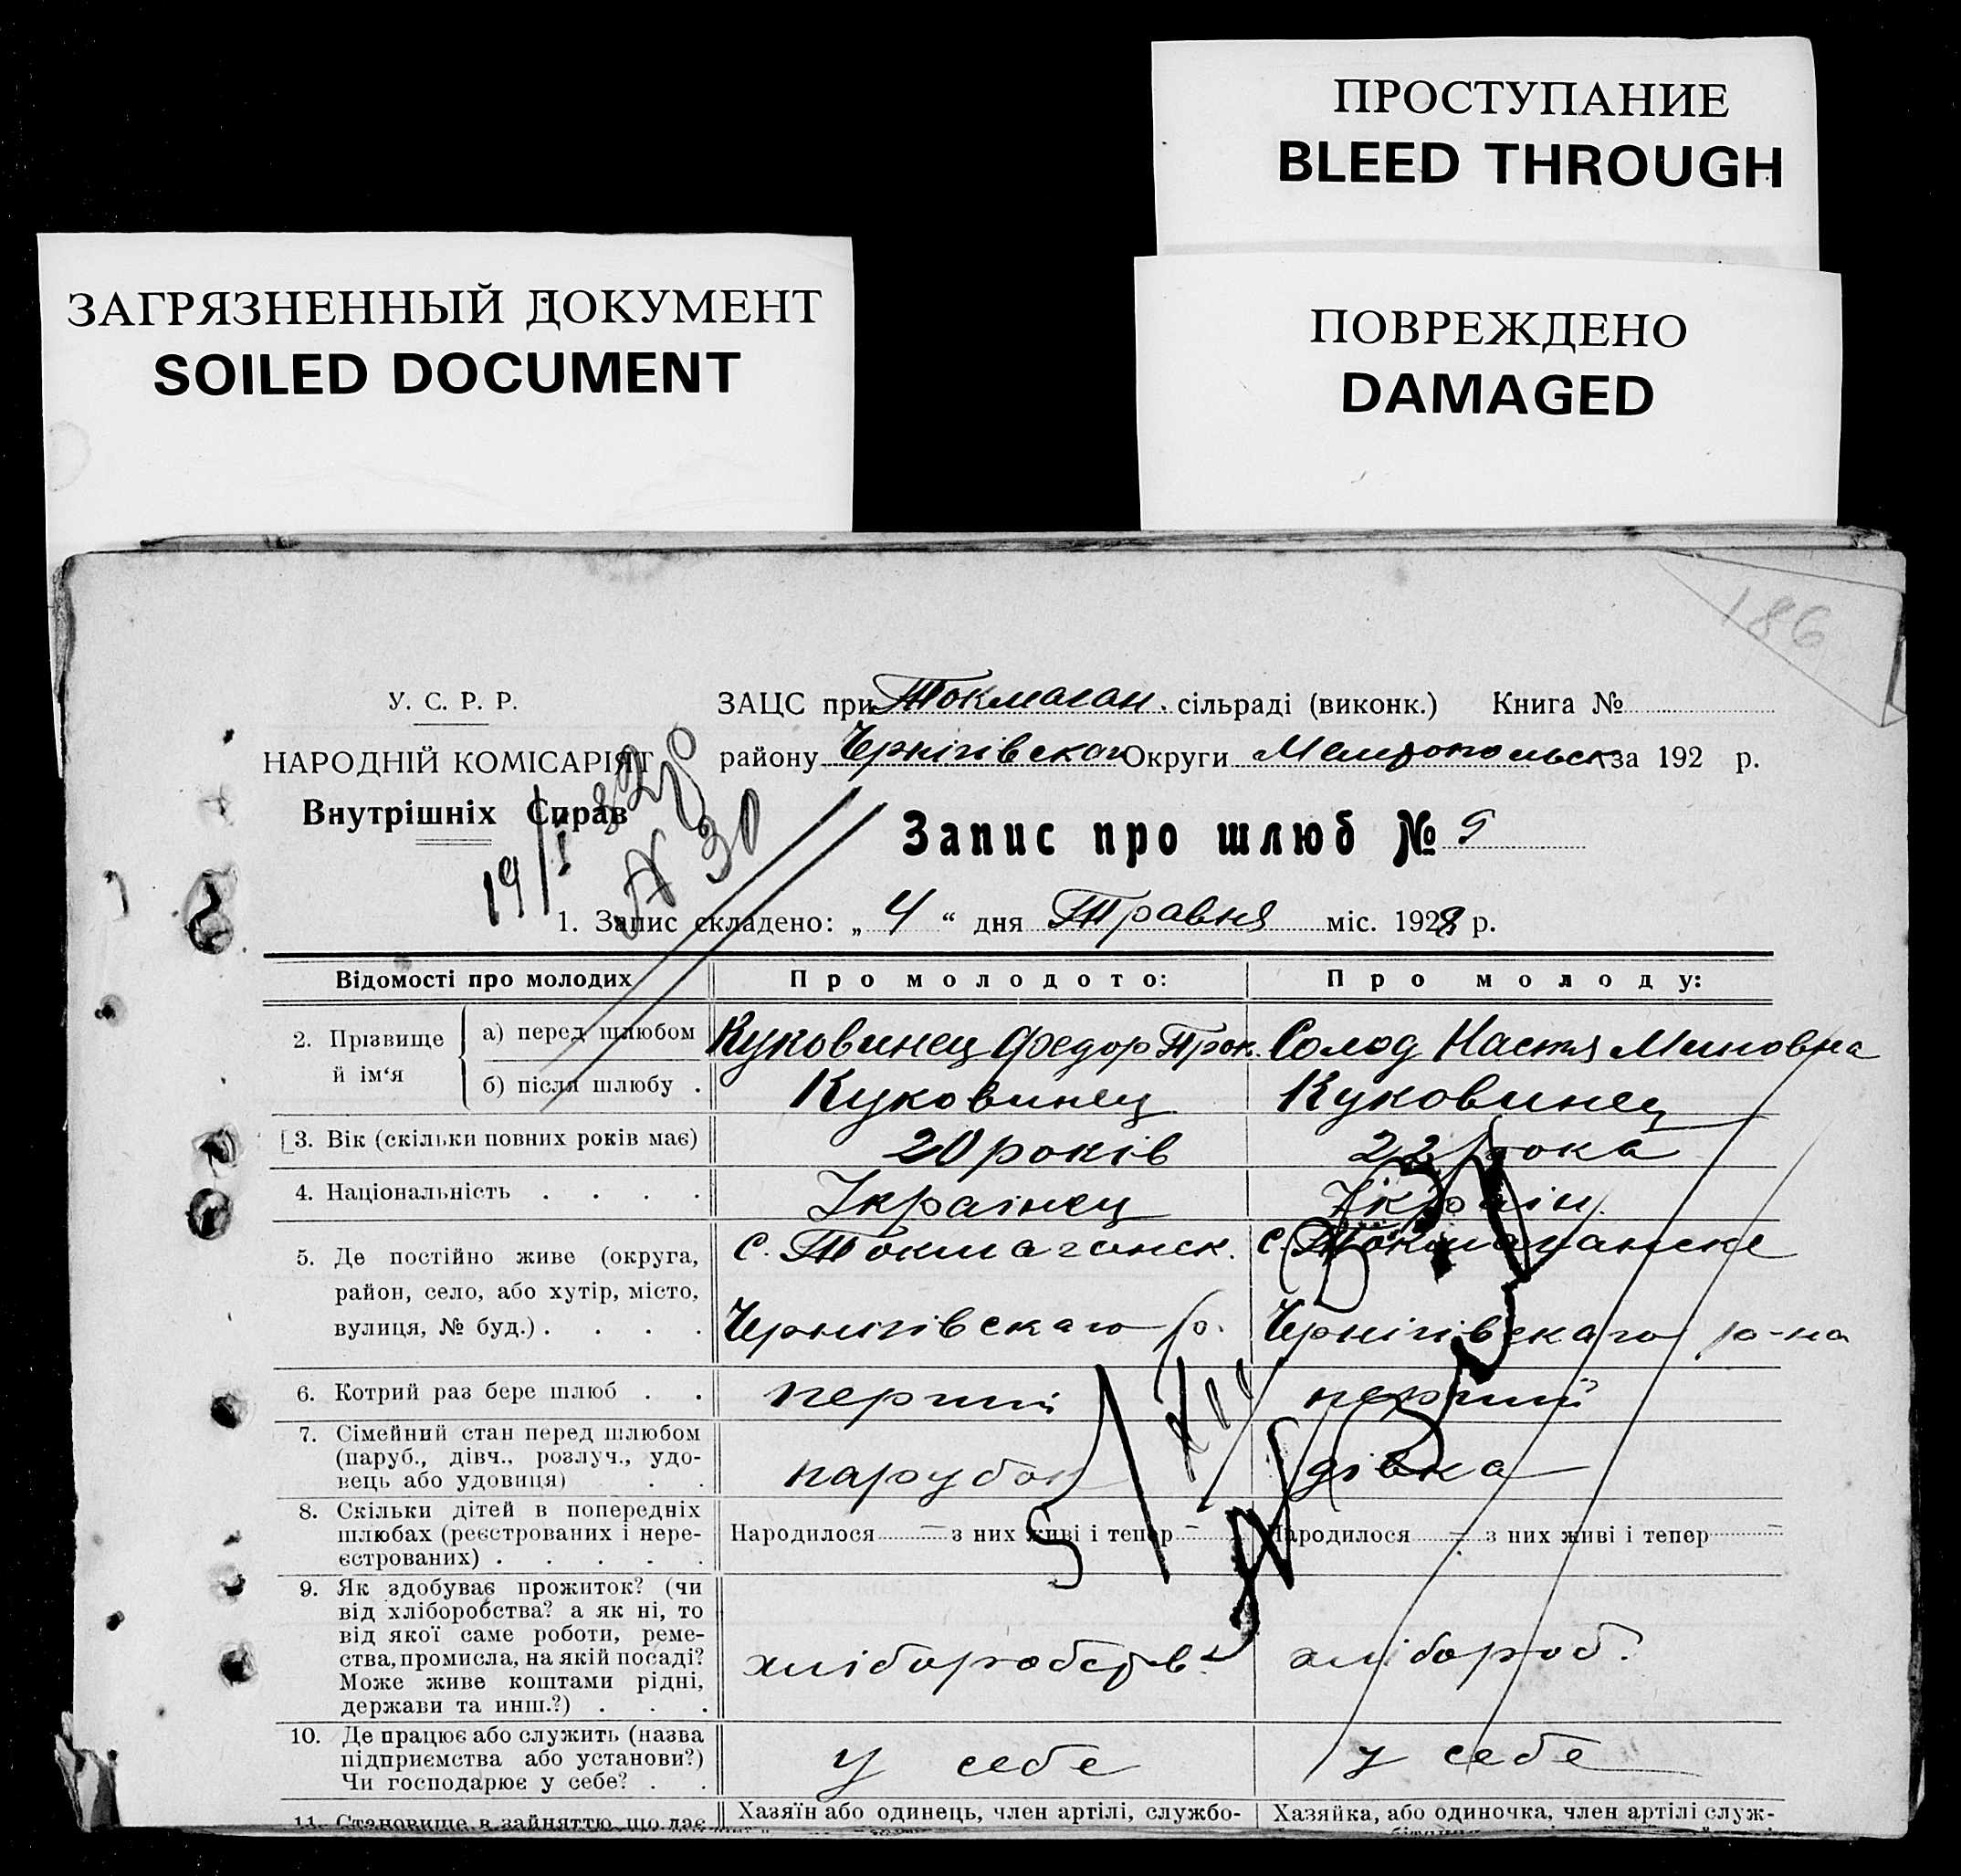 ПРОСТУПАНИЕ
BLEED THROUGH
ЗАГРЯЗНЕННЫЙ ДОКУМЕНТ
SOILED DOCUMENT
ПОВРЕЖДЕНО
DAMAGED
186
У. С. Р. Р.
НАРОДНІЙ КОМІСАРІЯТ
Внутрішніх Справ
ЗАЦС при Токмачан. сільраді (виконк.) Книга №
району Чернігівскаго Округи Мелітопольск за 192 р.
Запис про шлюб № 9
1. Запис складено: „ 4 “ дня Травня міс. 1928 р.
Відомості про молодих Про молодого: Про молоду:
2. Прізвище й ім‘я
а) перед шлюбом Куковинец Федор Прок. Солод Настя Миновна
б) після шлюбу . Куковинец Куковинец
3. Вік (скільки повних років має) 20 років 22 рока
4. Національність . . . . Украінец Украін.
5. Де постійно живе (округа, с. Токмачанск. с. Токмачанске
район, село, або хутір, місто,
вулиця, № буд.) . . . . Чернігівскаго р. Чернігівскаго р-на
6. Котрий раз бере шлюб . . перший перший
7. Сімейний стан перед шлюбом
(паруб., дівч., розлуч., удо-
вець або удовиця) . . парубок дівка
8. Скільки дітей в попередніх
шлюбах (реєстрованих і нере- Народилося — з них живі і тепер — Народилося — з них живі і тепер —
єстрованих) . . . . .
9. Як здобуває прожиток? (чи
від хліборобства? а як ні, то
від якої саме роботи, реме-
ства, промисла, на якій посаді? хліборобств. хлібороб.
Може живе коштами рідні,
держави та инш.?) . . .
10. Де працює або служить (назва
підприємства або установи?) у себе у себе
Чи господарює у себе? . .
11. Становище в зайняттю, що дає Хазяїн або одинець, член артілі, службо- Хазяйка, або одиночка, член артілі служ-